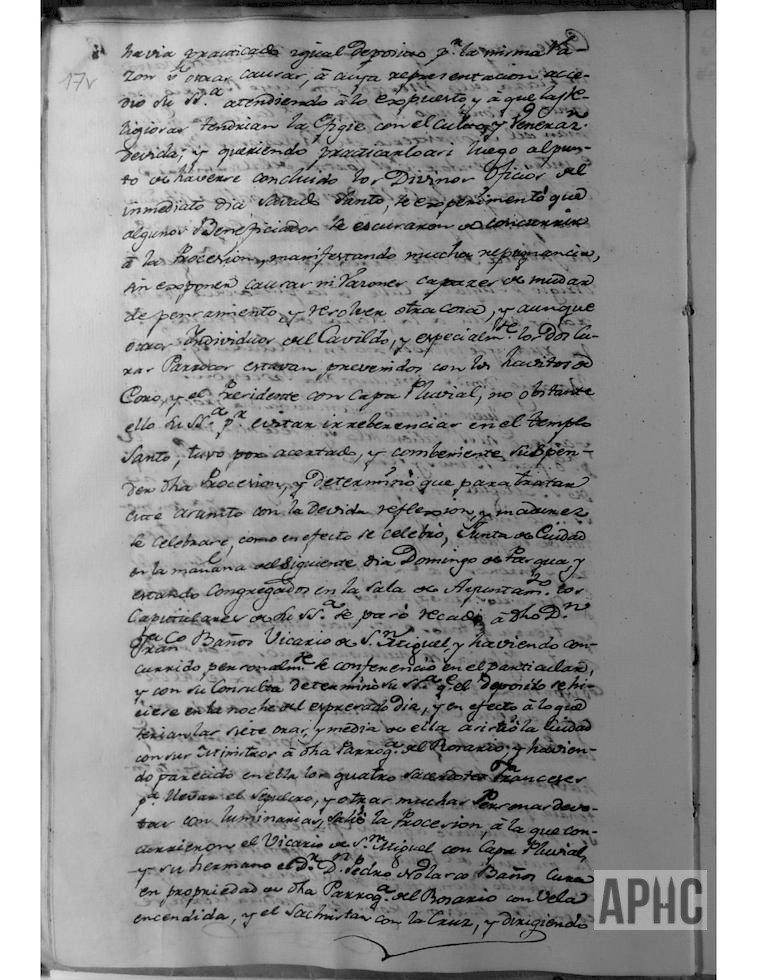 havia practicado igual Deposito p.r la misma Ra-
zon û otras causas, à cuya representacion acce-
dio su SS.a atendiendo à lo expuesto y à que las Re-
ligiosas tendrian la Efigie con el culto, y Veneraz.n
devida; y queriendo practicarlo asi luego al pun-
to de haverse concluido los Divinos Oficios del
inmediato dia Savado Santo, se experimentó que
algunos Beneficiados se escusaron de concurrir
à la Procesion, manifestando mucha repugnancia,
sin exponer causas ni Razones capazes de mudar
de pensamiento y resolver otra cosa, y aunque
otros Individuos del Cavildo, y especialm.te los Dos Cu-
ras Parrocos estavan prevenidos con los havitos de
Coro, y el Presidente con Capa Pluvial, no obstante
ello su SS.a p.r evitar irreberencias en el templo
Santo, tuvo por acertado, y combeniente suspen-
der dha Procesion, y determinó que para tratar
este asunto con la devida reflexion, y madurez
se celebrase, como en efecto se celebró, Junta de Ciudad
en la mañana del siguiente dia Domingo de Pasqua, y
estando Congregados en la Sala de Ayuntam.to los
Capitulares de su SS.a se pasó recado à dho D.n
Fran.co Baños Vicario de S.n Miguel, y haviendo con-
currido personalm.te se conferenció en el particular,
y con su Consulta determinó su SS.a q.e el Deposito se hi-
ciese en la noche del expresado dia, y en efecto à lo que
serian las siete oras, y media de ella asistió la Ciudad
con sus Ministros à dha Parroq.a del Rosario, y havien-
do parecido en ella los quatro sacerdotes Franceses
p.a llevar el Sepulcro, y otras muchas Personas devo-
tas con luminarias, salió la Procesion, à la que con-
currieron el Vicario de S.n Miguel con Capa Pluvial,
y su hermano el D.r D.n Pedro Nolasco Baños Cura
en propriedad de dha Parroq.a del Rosario con Vela
encendida, y el Sachristan con la Cruz, y dirigiendo
17v
APHC